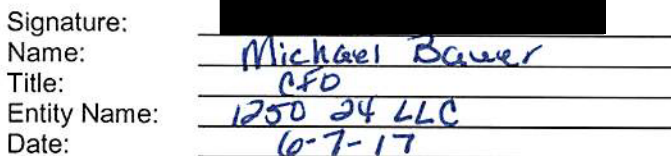 Signature:
Name: Michael Bauer
Title: CFO
Entity Name: 1250 24 LLC
Date: 6-7-17